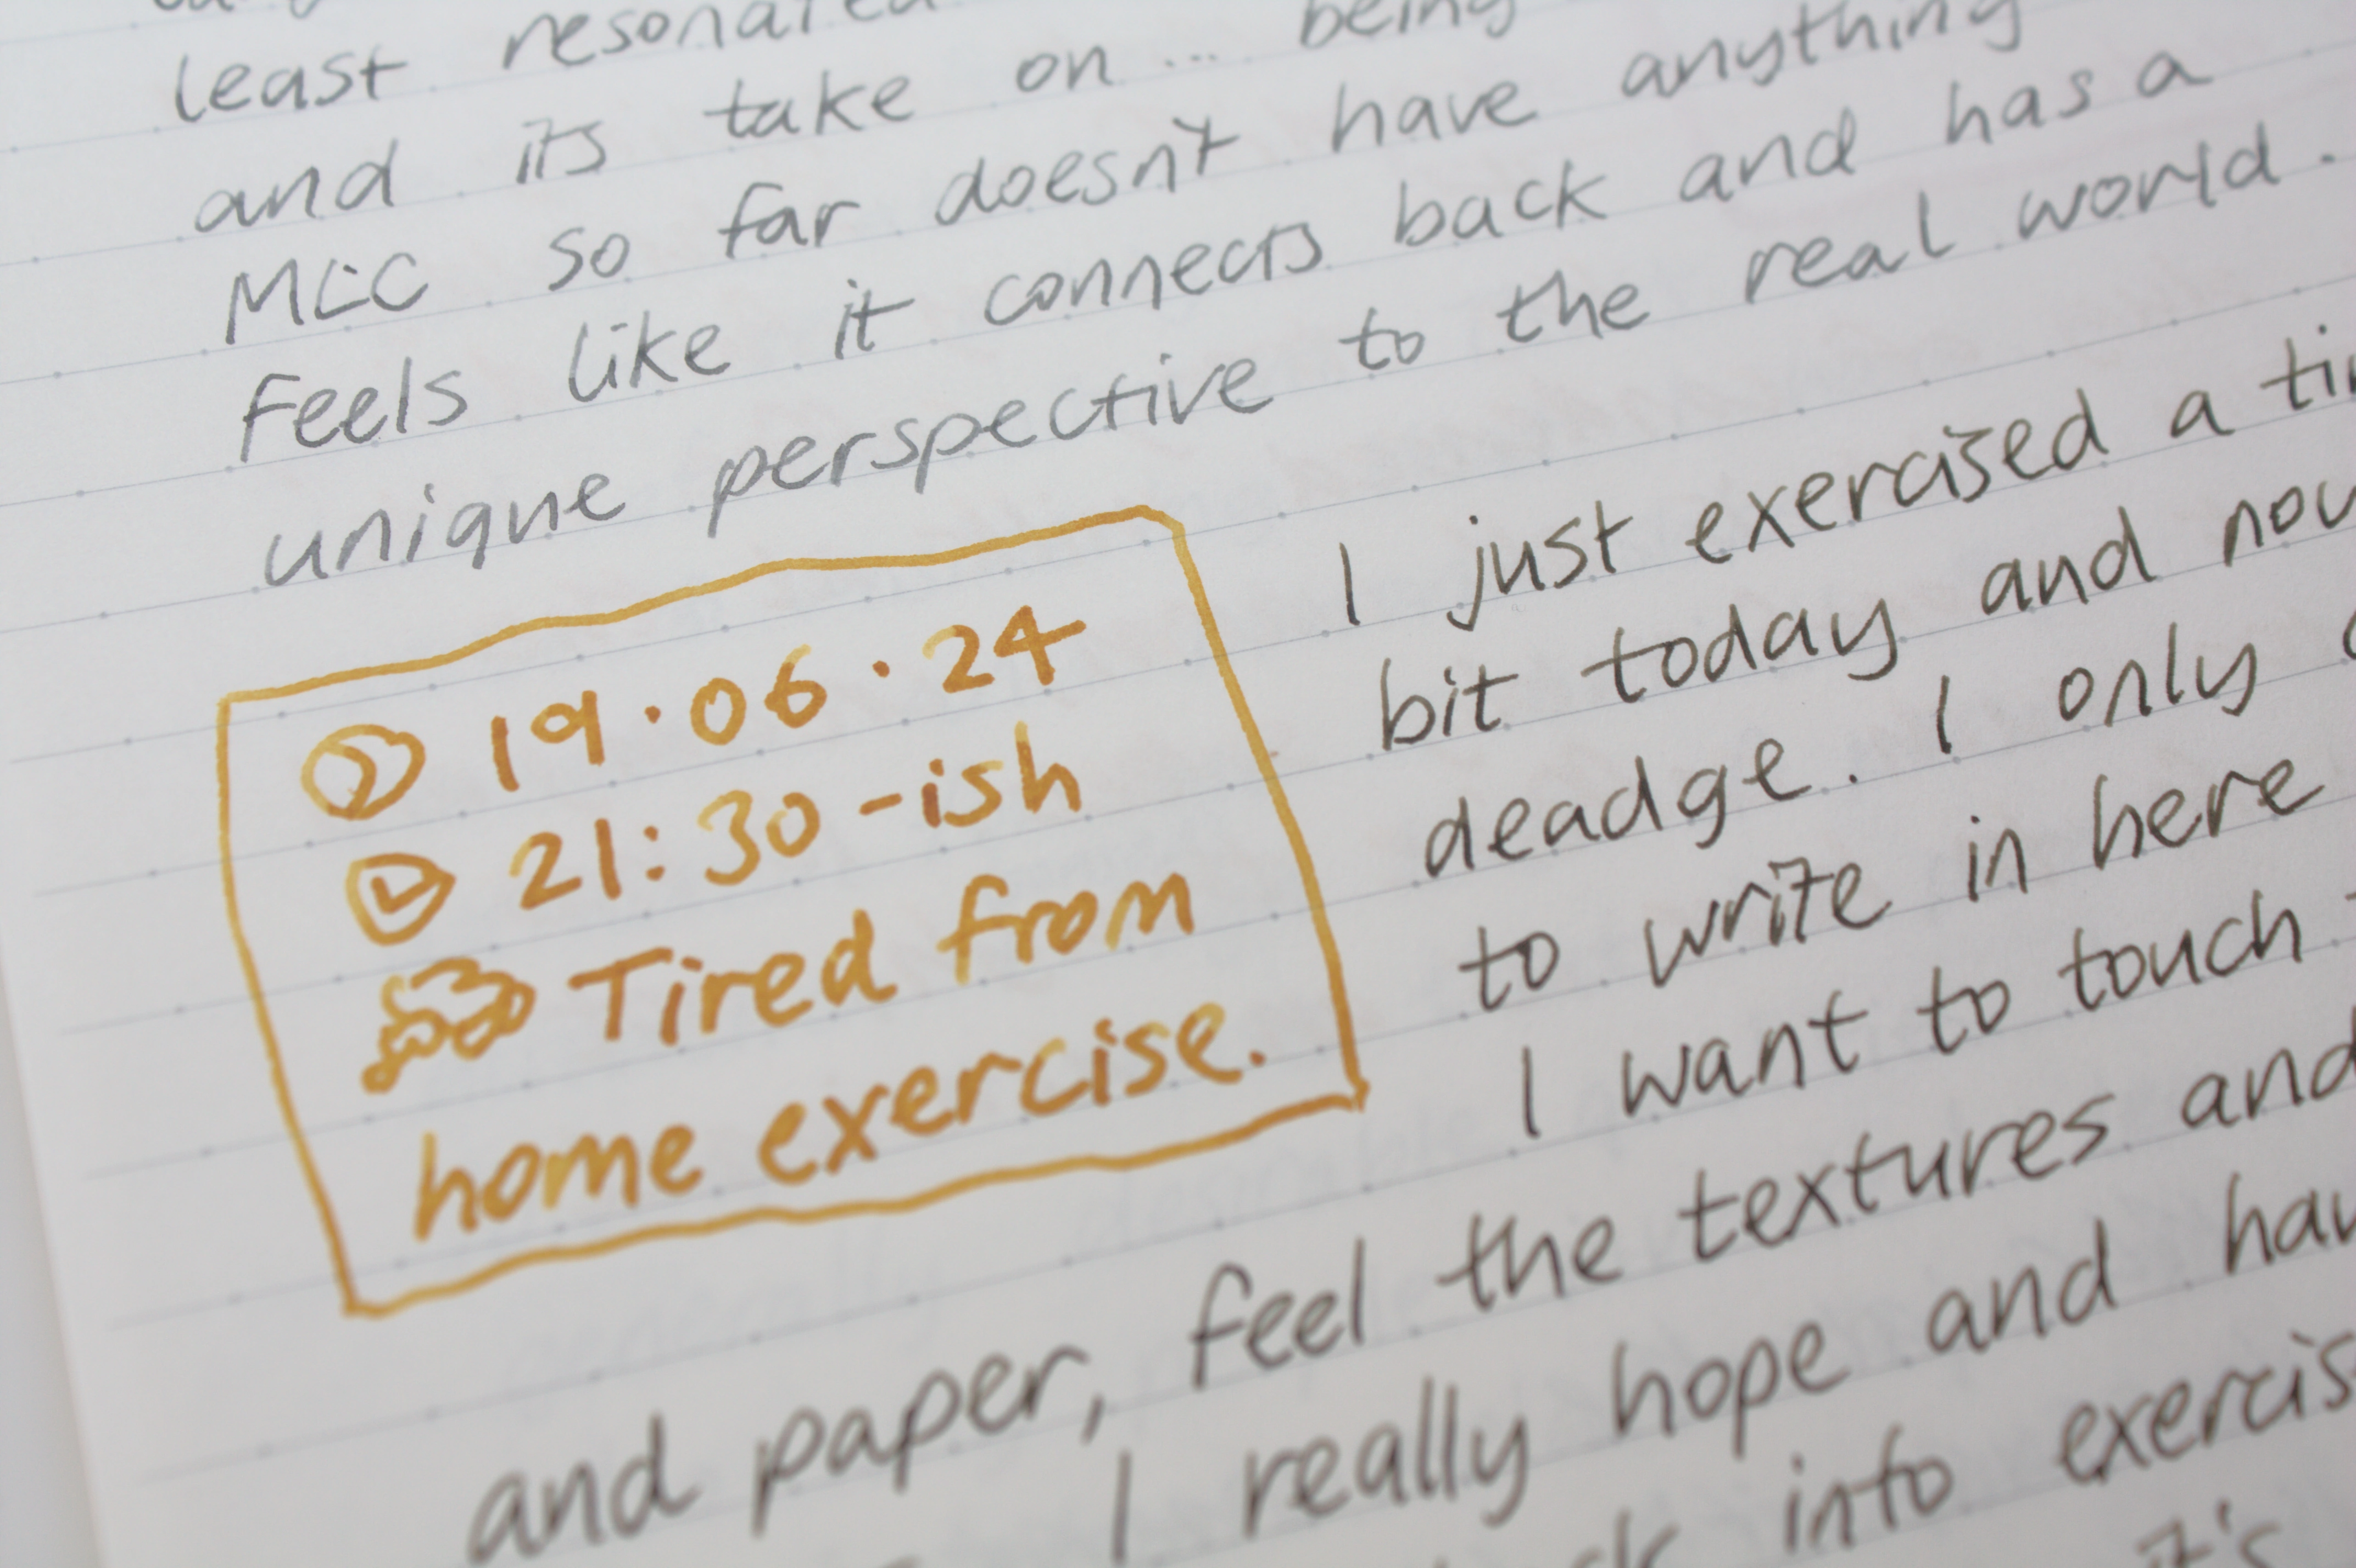 least resonated
and its take on... being
MLC so far doesn't have anything
feels like it connects back and has a
unique perspective to the real world.
19.06.24
21:30-ish
Tired from
home exercise.
I just exercised a
bit today and now
deadge. I only
to write in here
I want to touch
and paper, feel the textures and
I really hope and
into exercis
it's